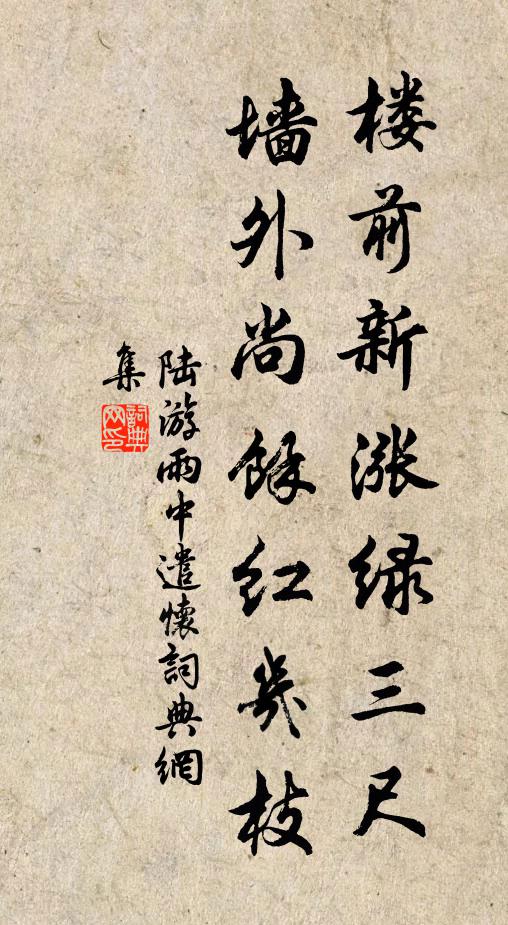 楼前新涨绿三尺
墙外尚餘红幾枝
陆游雨中遣懷詞典網
集
詞典网印